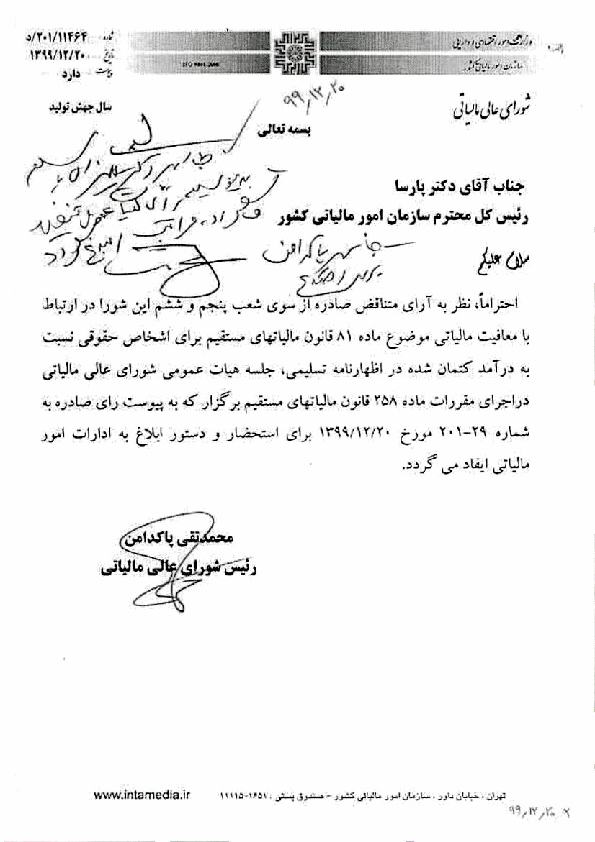 وزارت امور اقتصادی و دارایی
سازمان امور مالیاتی کشور
شماره: ۵/۲۰۱/۱۱۴۶۴
تاریخ: ۱۳۹۹/۱۲/۲۰
پیوست: دارد
سال جهش تولید
شورای عالی مالیاتی
۹۹،۱۲،۲۰
بسمه تعالی
جناب آقای دکتر پارسا
رئیس کل محترم سازمان امور مالیاتی کشور
سلام علیکم
احتراماً، نظر به آرای متناقض صادره از سوی شعب پنجم و ششم این شورا در ارتباط
با معافیت مالیاتی موضوع ماده ۸۱ قانون مالیاتهای مستقیم برای اشخاص حقوقی نسبت
به درآمد کتمان شده در اظهارنامه تسلیمی، جلسه هیات عمومی شورای عالی مالیاتی
دراجرای مقررات ماده ۲۵۸ قانون مالیاتهای مستقیم برگزار که به پیوست رای صادره به
شماره ۲۹-۲۰۱ مورخ ۱۳۹۹/۱۲/۲۰ برای استحضار و دستور ابلاغ به ادارات امور
مالیاتی ایفاد می گردد.
محمدتقی پاکدامن
رئیس شورای عالی مالیاتی
تهران ، خیابان داور ، سازمان امور مالیاتی کشور - صندوق پستی : ۱۶۵۱-۱۱۱۱۵
www.intamedia.ir
۹۹،۱۲،۲۰